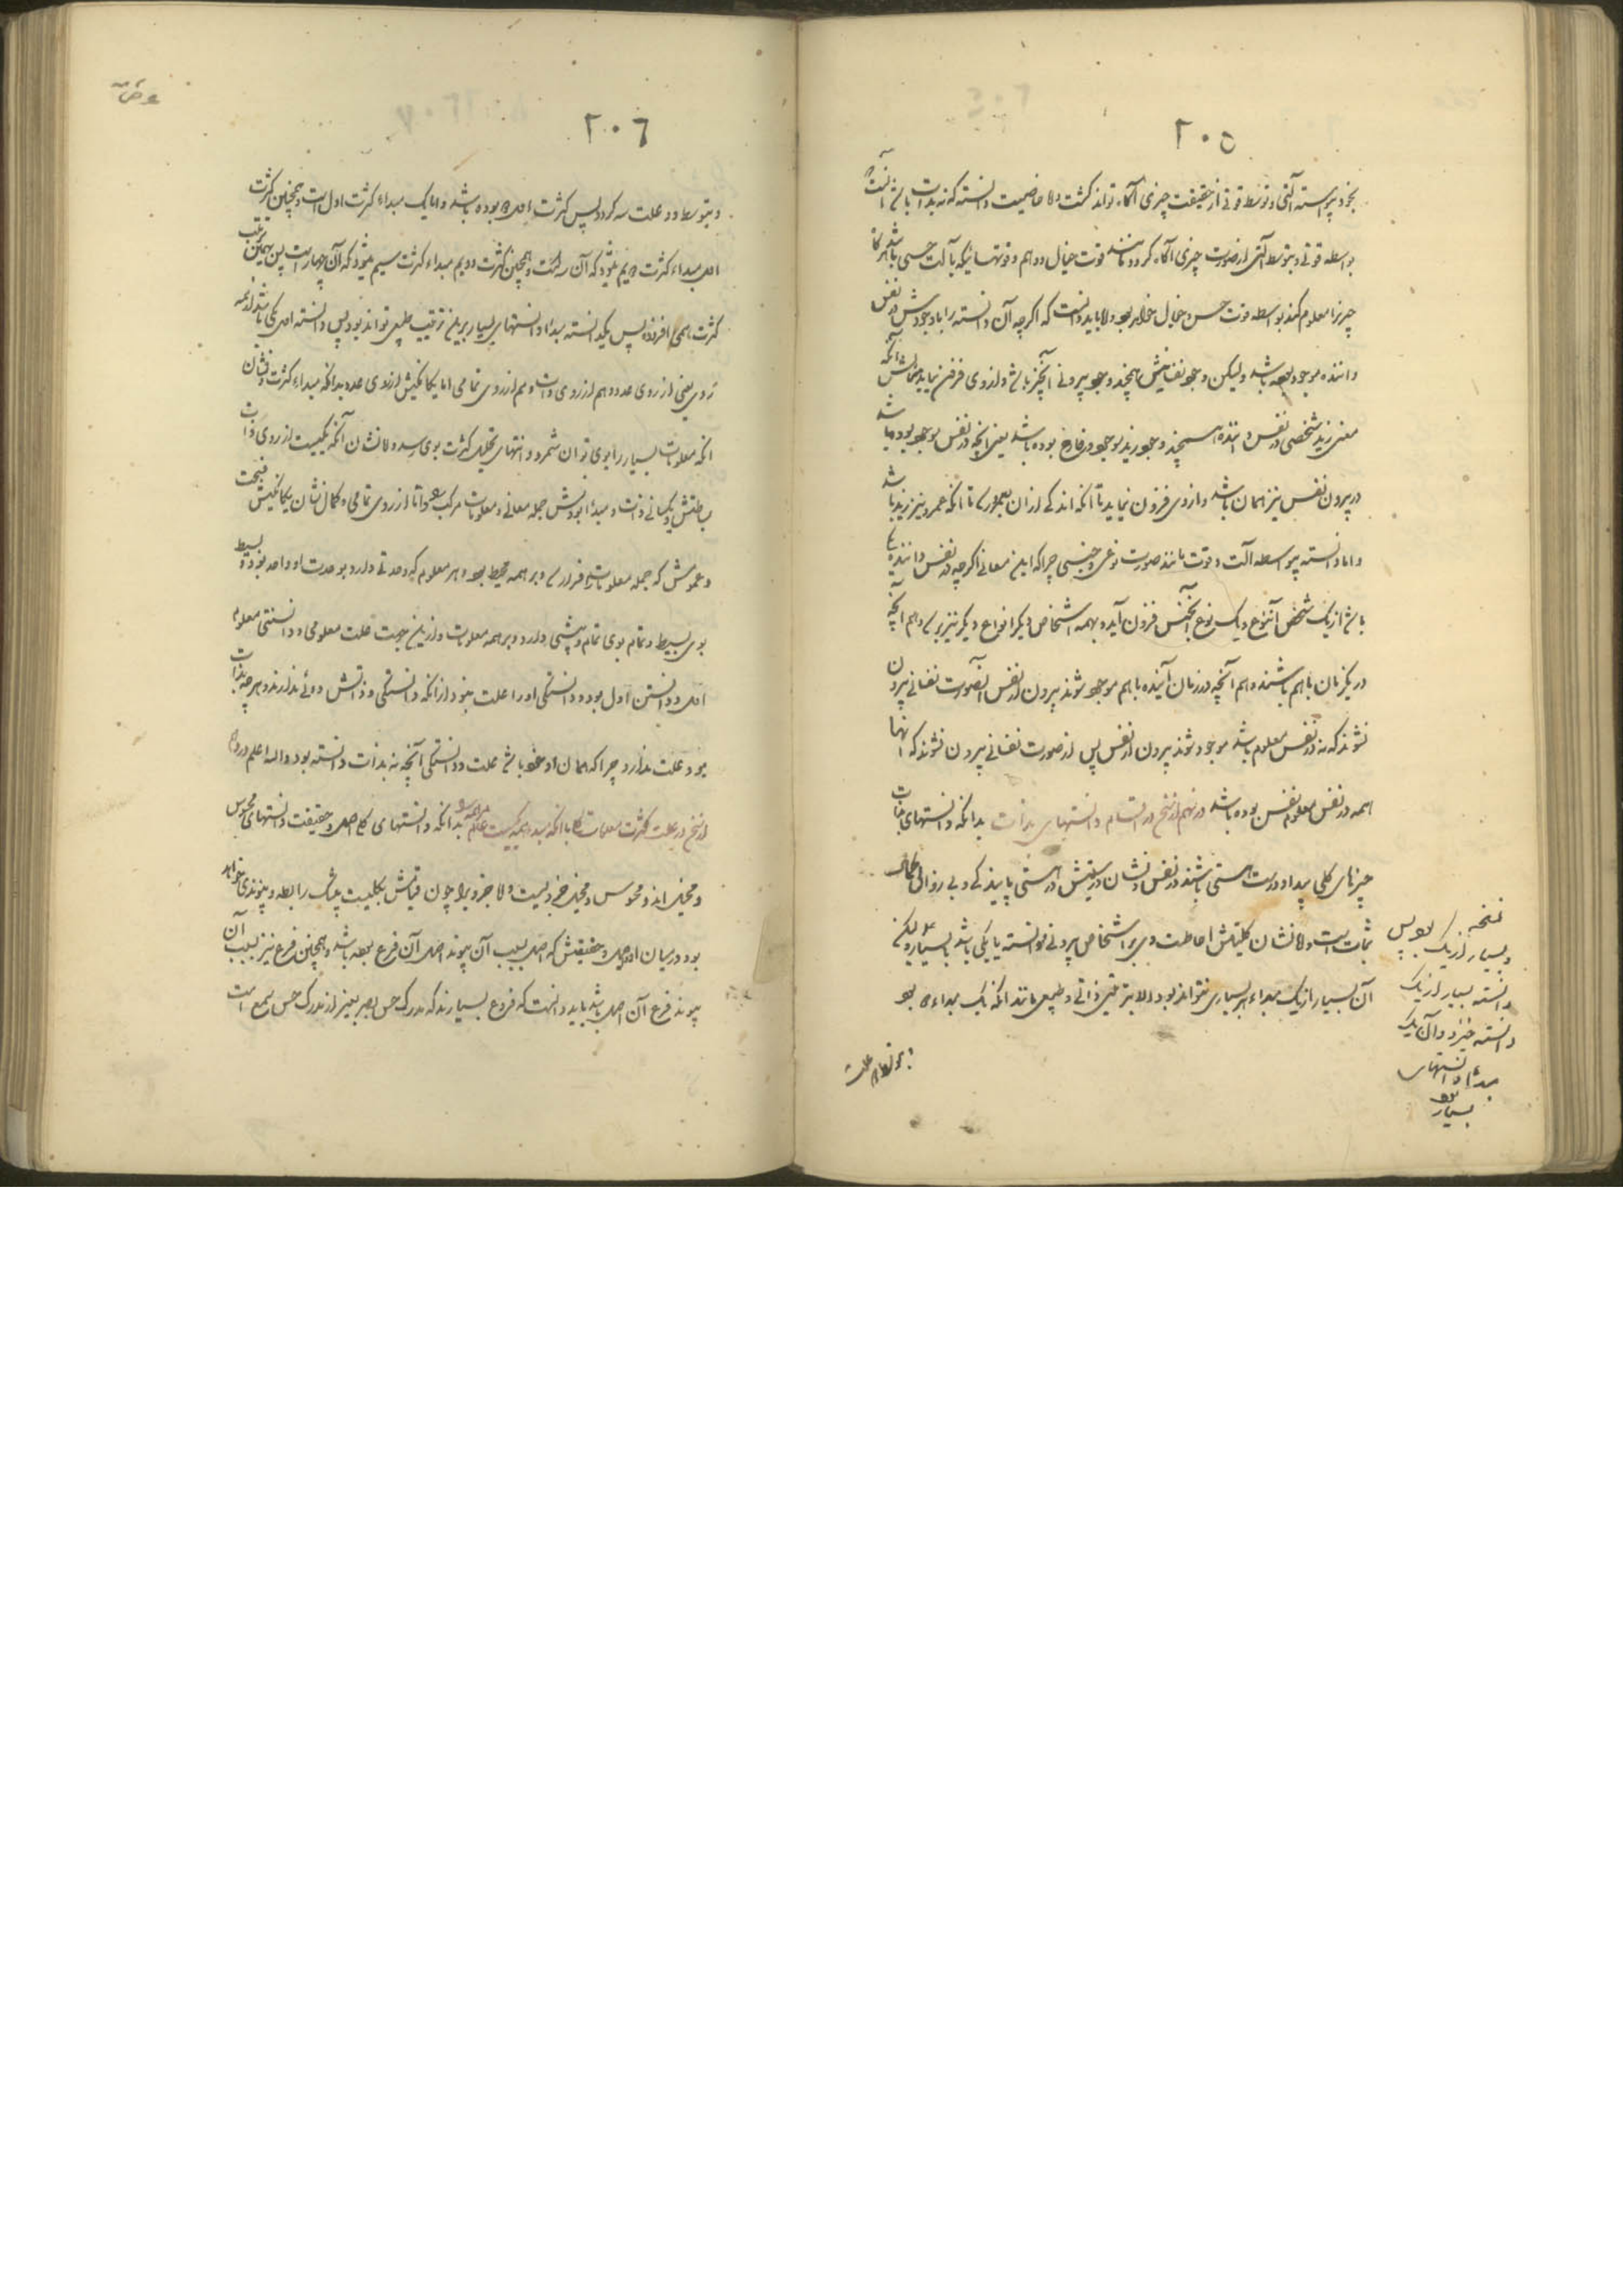 ٢٠٥
بخود پیوسته آلتی و توسط قوتی از حقیقت چیزی آگاه تواند گشت ولا خاصیت دانسته که نه بذات باشد آنست
بواسطه قوتی و بتوسط آلتی از صورت چیزی آگاه گردد مانند قوت خیال و وهم و قوتهائیکه بآلت حسی باشد هرگاه
چیزیرا معلوم کند بواسطه قوت حس و خیال ظاهر بود ولا باید دانست که اگرچه آن دانسته را با وجودش در نفس
داننده موجود بوده باشد ولیکن وجود نفسانیش همچند وجود بیرونی آنچیز باشد و از وی فزون نیاید مثالش آنکه
معنی زید شخصی در نفس داننده همچند وجود زید موجود در خارج بوده باشد یعنی آنچه در نفس موجود بود باشد
در بیرون نفس نیز همان باشد و از وی فزون نیاید تا آنکه اندکی از آن بعمرو رسد تا آنکه عمرو نیز زید باشد
واما دانسته بیواسطه آلت و قوت مانند صورت نوعی و جنسی چراکه این معانی اگرچه در نفس داننده یکی
باشد از یک شخص آن نوع و یک نوع آنجنس فزون آید و بهمه اشخاص دیگر و انواع دیگر نیز برسد و هم آنچه
در یکزمان باهم باشند و هم آنچه در زمان آینده باهم موجود شوند بیرون از نفس از آنصورت نفسانی بیرون
نشوند که نه در نفس معلوم باشد موجود شوند بیرون از نفس پس از صورت نفسانی بیرون نشوند که آنها
همه در نفس معلوم نفس بوده باشد در نهم از نخ در اقسام دانستهای بذات بدانکه دانستهای بذات
چیزهای کلی پیدا و درست هستی باشند در نفس و نشان درستیش در هستی پایندگی و بی زوالی بحال
ثبات است ولا نشان کلیتش احاطت وی بر اشخاص بیرونی تو دانسته یا یکی باشد یا بسیار و لیکن
آن بسیار از یک مبداء بر بسیاری نتواند بود الا بترتیبی ذاتی و طبیعی مانند آنکه یک مبداء دو بود
نسخه بدل پس
و بسیار از یک
دانسته بسیار از یک
دانسته خیزد و آن یک
مبداء دانستهای
بسیار بود
و بتوسط دو علت
٢٠٦
و بتوسط دو علت سه گردد پس کثرت اول دو بوده باشد و اما یک مبداء کثرت اول است و همچنین کثرت
اول مبداء کثرت دویم شود که آن سه است و همچنین کثرت دویم مبداء کثرت سیم شود که آن چهار است پس بهمین ترتیب
کثرت همی افزود پس یکدانسته مبداء دانستهای بسیار بر این ترتیب طبیعی تواند بود پس دانسته اول یکی باشد از همه
روی یعنی از روی عدد و هم از روی ذات و هم از روی تمامی اما یگانگیش از روی عدد بدانکه مبداء کثرت و نشان
آنکه معلومات بسیار را بوی توان شمرد و انتهای تحلیل کثرت بوی رسد ولا نشان آنکه یکیست از روی ذات
بساطتش و یکسانی ذات و مبداء بودنش جمله معانی و معلومات مرکب را و اما از روی تمامی و کمال نشان یگانگیش
و عمومش که جمله معلومات را فرا رسد و بر همه محیط بود و هر معلوم که وحدتی دارد بوحدت او واحد بود و بسیط
بوی بسیط و تمام بوی تمام و پیشی دارد و بر همه معلومات و از این جهت علت معلومی و دانستنی معلوم
اول و دانستن اول بود و دانستگی او را علت نبود از آنکه دانستگی و ذاتش دوئی ندارند و هر چه بذات
بود علت ندارد چراکه همان او خود باشد علت و دانستگی آنچه نه بذات دانسته بود والله اعلم در دهم
از نخ در علت کثرت معلومات کلی با آنکه مبداء همه یکیست بدانکه دانستهای کلی اصل و حقیقت دانستهای محسوس
و مخیل اند و محسوس و مخیل جزویست ولا جزو را چون قیاس بکلیت پیوست رابطه و پیوندی خواهد
بود در میان او و اصل و حقیقتش که اصل بسبب آن پیوند اصل آن فرع بوده باشد و همچنین فرع نیز بسبب آن
پیوند فرع آن اصل باشد باید دانست که فروع بسیارند که مدرک حس بصر بغیر از مدرک حس سمع است